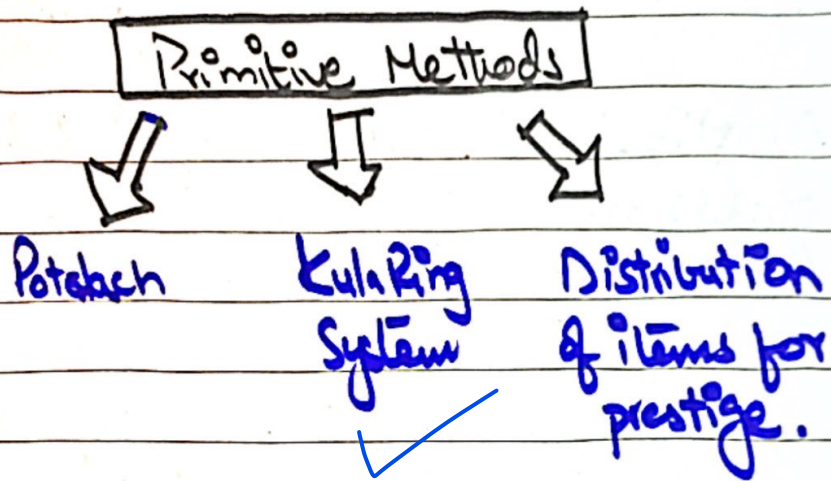 Primitive Methods
Potalach
Kula Ring
System
Distribution
of items for
prestige.